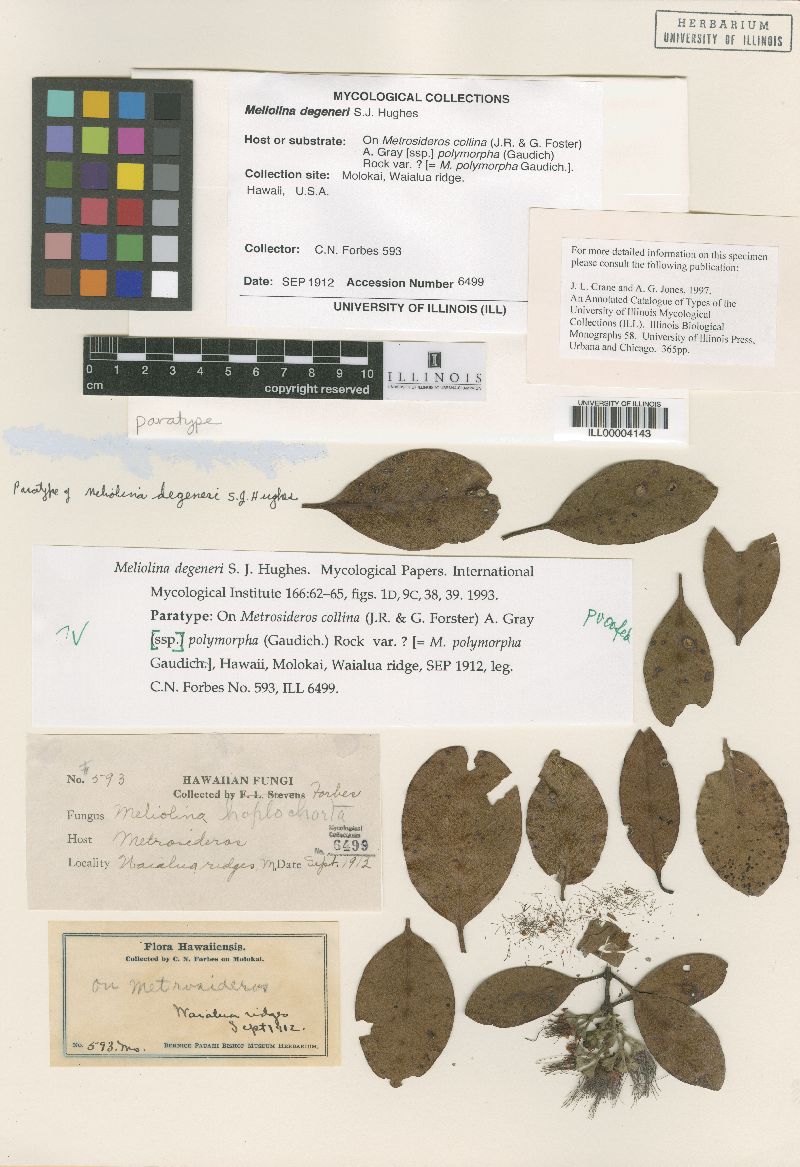 HERBARIUM
UNIVERSITY OF ILLINOIS
MYCOLOGICAL COLLECTIONS
Meliolina degeneri S.J. Hughes
Host or substrate: On Metrosideros collina (J.R. & G. Foster)
A. Gray [ssp.] polymorpha (Gaudich)
Rock var. ? [= M. polymorpha Gaudich.].
Collection site: Molokai, Waialua ridge.
Hawaii, U.S.A.
Collector: C.N. Forbes 593
Date: SEP 1912 Accession Number 6499
UNIVERSITY OF ILLINOIS (ILL)
For more detailed information on this specimen
please consult the following publication:
J. L. Crane and A. G. Jones. 1997.
An Annotated Catalogue of Types of the
University of Illinois Mycological
Collections (ILL). Illinois Biological
Monographs 58. University of Illinois Press,
Urbana and Chicago. 365pp.
0 1 2 3 4 5 6 7 8 9 10
cm
copyright reserved
ILLINOIS
paratype
UNIVERSITY OF ILLINOIS
ILL00004143
Paratype of Meliolina degeneri S.J. Hughes
Meliolina degeneri S. J. Hughes. Mycological Papers. International
Mycological Institute 166:62–65, figs. 1D, 9C, 38, 39. 1993.
Paratype: On Metrosideros collina (J.R. & G. Forster) A. Gray
[ssp.] polymorpha (Gaudich.) Rock var. ? [= M. polymorpha
Gaudich.], Hawaii, Molokai, Waialua ridge, SEP 1912, leg.
C.N. Forbes No. 593, ILL 6499.
No. #593
HAWAIIAN FUNGI
Collected by F. L. Stevens Forbes
Fungus Meliolina hoplochorta
Host Metrosideros
Mycological
Collection
No. 6499
Locality Waialua ridges, M. Date Sept. 1912
Flora Hawaiiensis.
Collected by C. N. Forbes on Molokai.
on Metrosideros
Waialua ridges
Sept 1912.
No. 593. Mo. BERNICE PAUAHI BISHOP MUSEUM HERBARIUM.